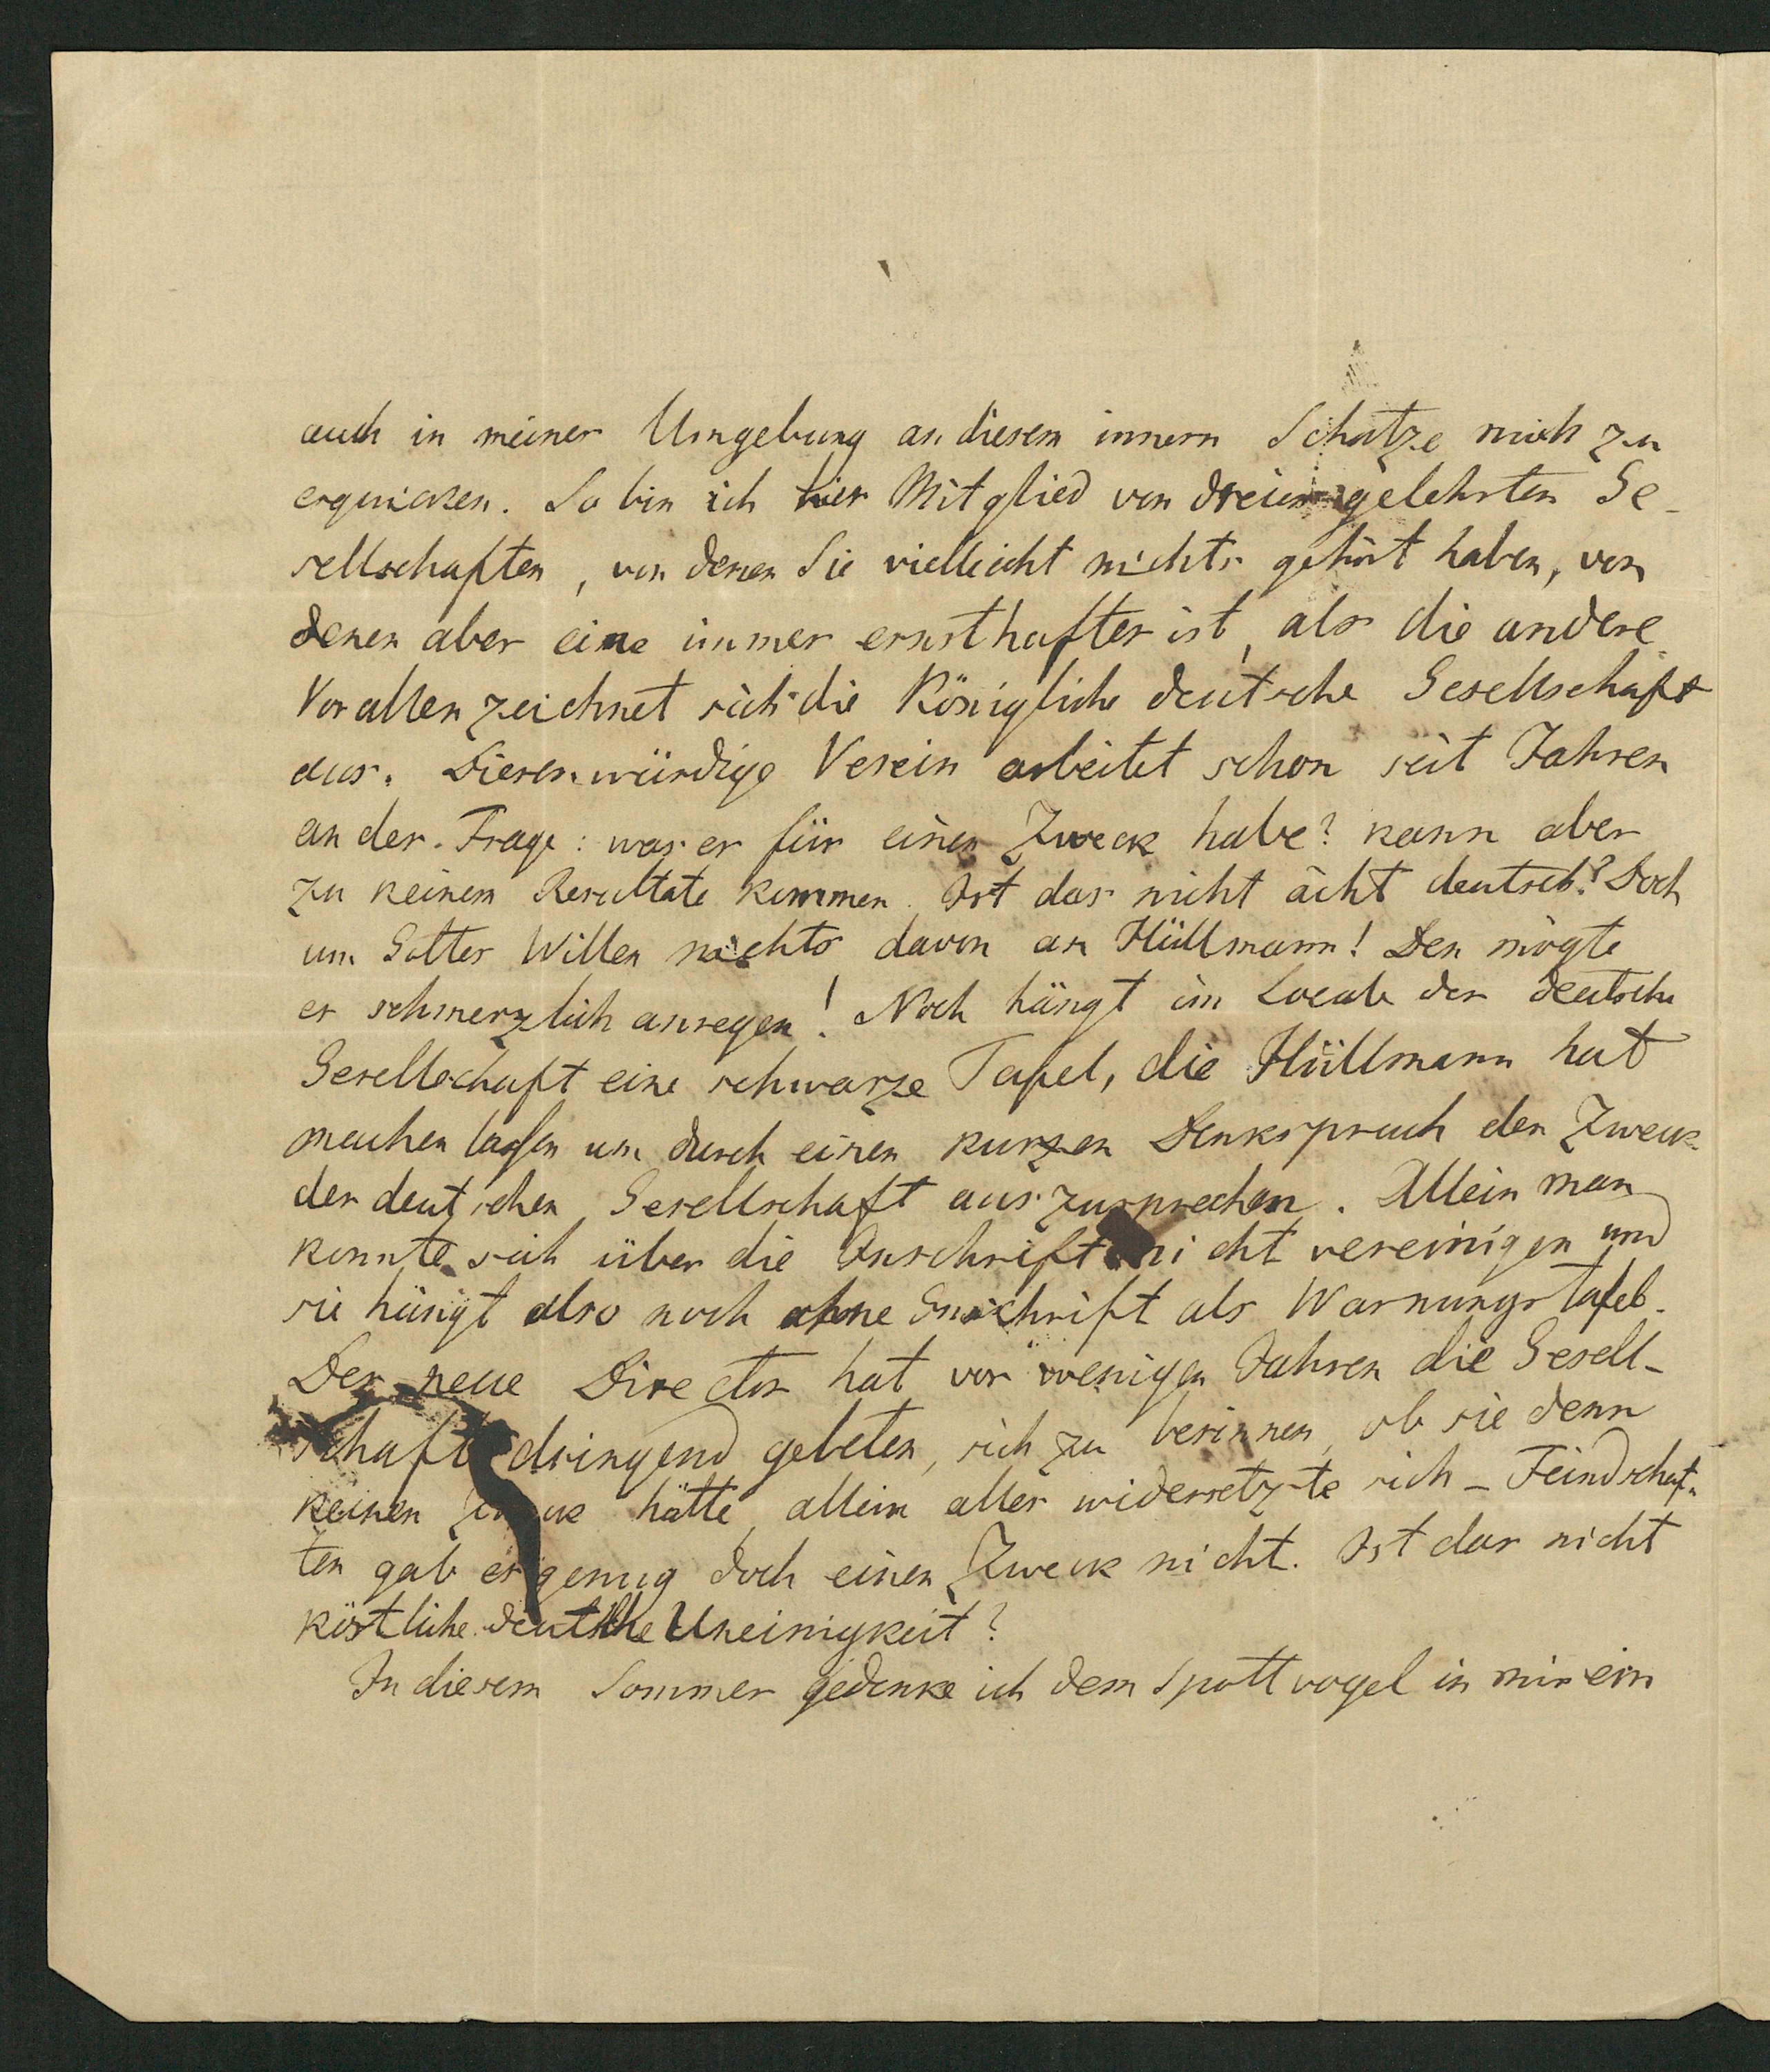 auch in meiner Umgebung an diesem innern Schatze mich zu
erquicken. So bin ich hier Mitglied von dreien gelehrten Ge-
sellschaften, von denen Sie vielleicht nichts gehört haben, von
denen aber eine immer ernsthafter ist, als die andere.
Vor allen zeichnet sich die Königliche deutsche Gesellschaft
aus. Dieser würdige Verein arbeitet schon seit Jahren
an der Frage: was er für einen Zweck habe? kann aber
zu keinem Resultate kommen. Ist das nicht ächt deutsch? Doch
um Gottes Willen nichts davon an Hüllmann! Den mögte
es schmerzlich anregen! Noch hängt im Locale der deutschen
Gesellschaft eine schwarze Tafel, die Hüllmann hat
machen lassen um durch einen kurzen Denkspruch den Zweck
der deutschen Gesellschaft auszusprechen. Allein man
konnte sich über die Inschrift nicht vereinigen und
sie hängt also noch ohne Inschrift als Warnungstafel.
Der neue Director hat vor wenigen Jahren die Gesell-
schaft dringend gebeten, sich zu besinnen, ob sie denn
keinen Zweck hätte, allein alles widersetzte sich – Feindschaf-
ten gab es genug doch einen Zweck nicht. Ist das nicht
köstliche deutsche Uneinigkeit?
In diesem Sommer gedenke ich dem Spottvogel in mir ein